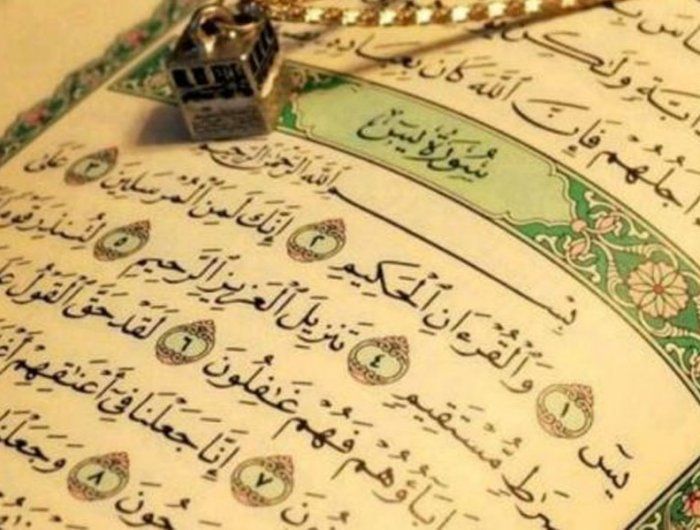 أَجَلُهُمْ فَإِنَّ ٱللَّهَ كَانَ
سُورَةُ يسٓ
بِسْمِ ٱللَّهِ ٱلرَّحْمَٰنِ ٱلرَّحِيمِ
يسٓ ١ وَٱلْقُرْءَانِ ٱلْحَكِيمِ ٢ إِنَّكَ لَمِنَ ٱلْمُرْسَلِينَ ٣ عَلَىٰ
صِرَٰطٍ مُّسْتَقِيمٍ ٤ تَنزِيلَ ٱلْعَزِيزِ ٱلرَّحِيمِ ٥ لِتُنذِرَ قَوْمًا
ءَابَآؤُهُمْ فَهُمْ غَٰفِلُونَ ٦ لَقَدْ حَقَّ ٱلْقَوْلُ
٧ إِنَّا جَعَلْنَا فِىٓ أَعْنَٰقِهِمْ
٨ وَجَعَلْنَا